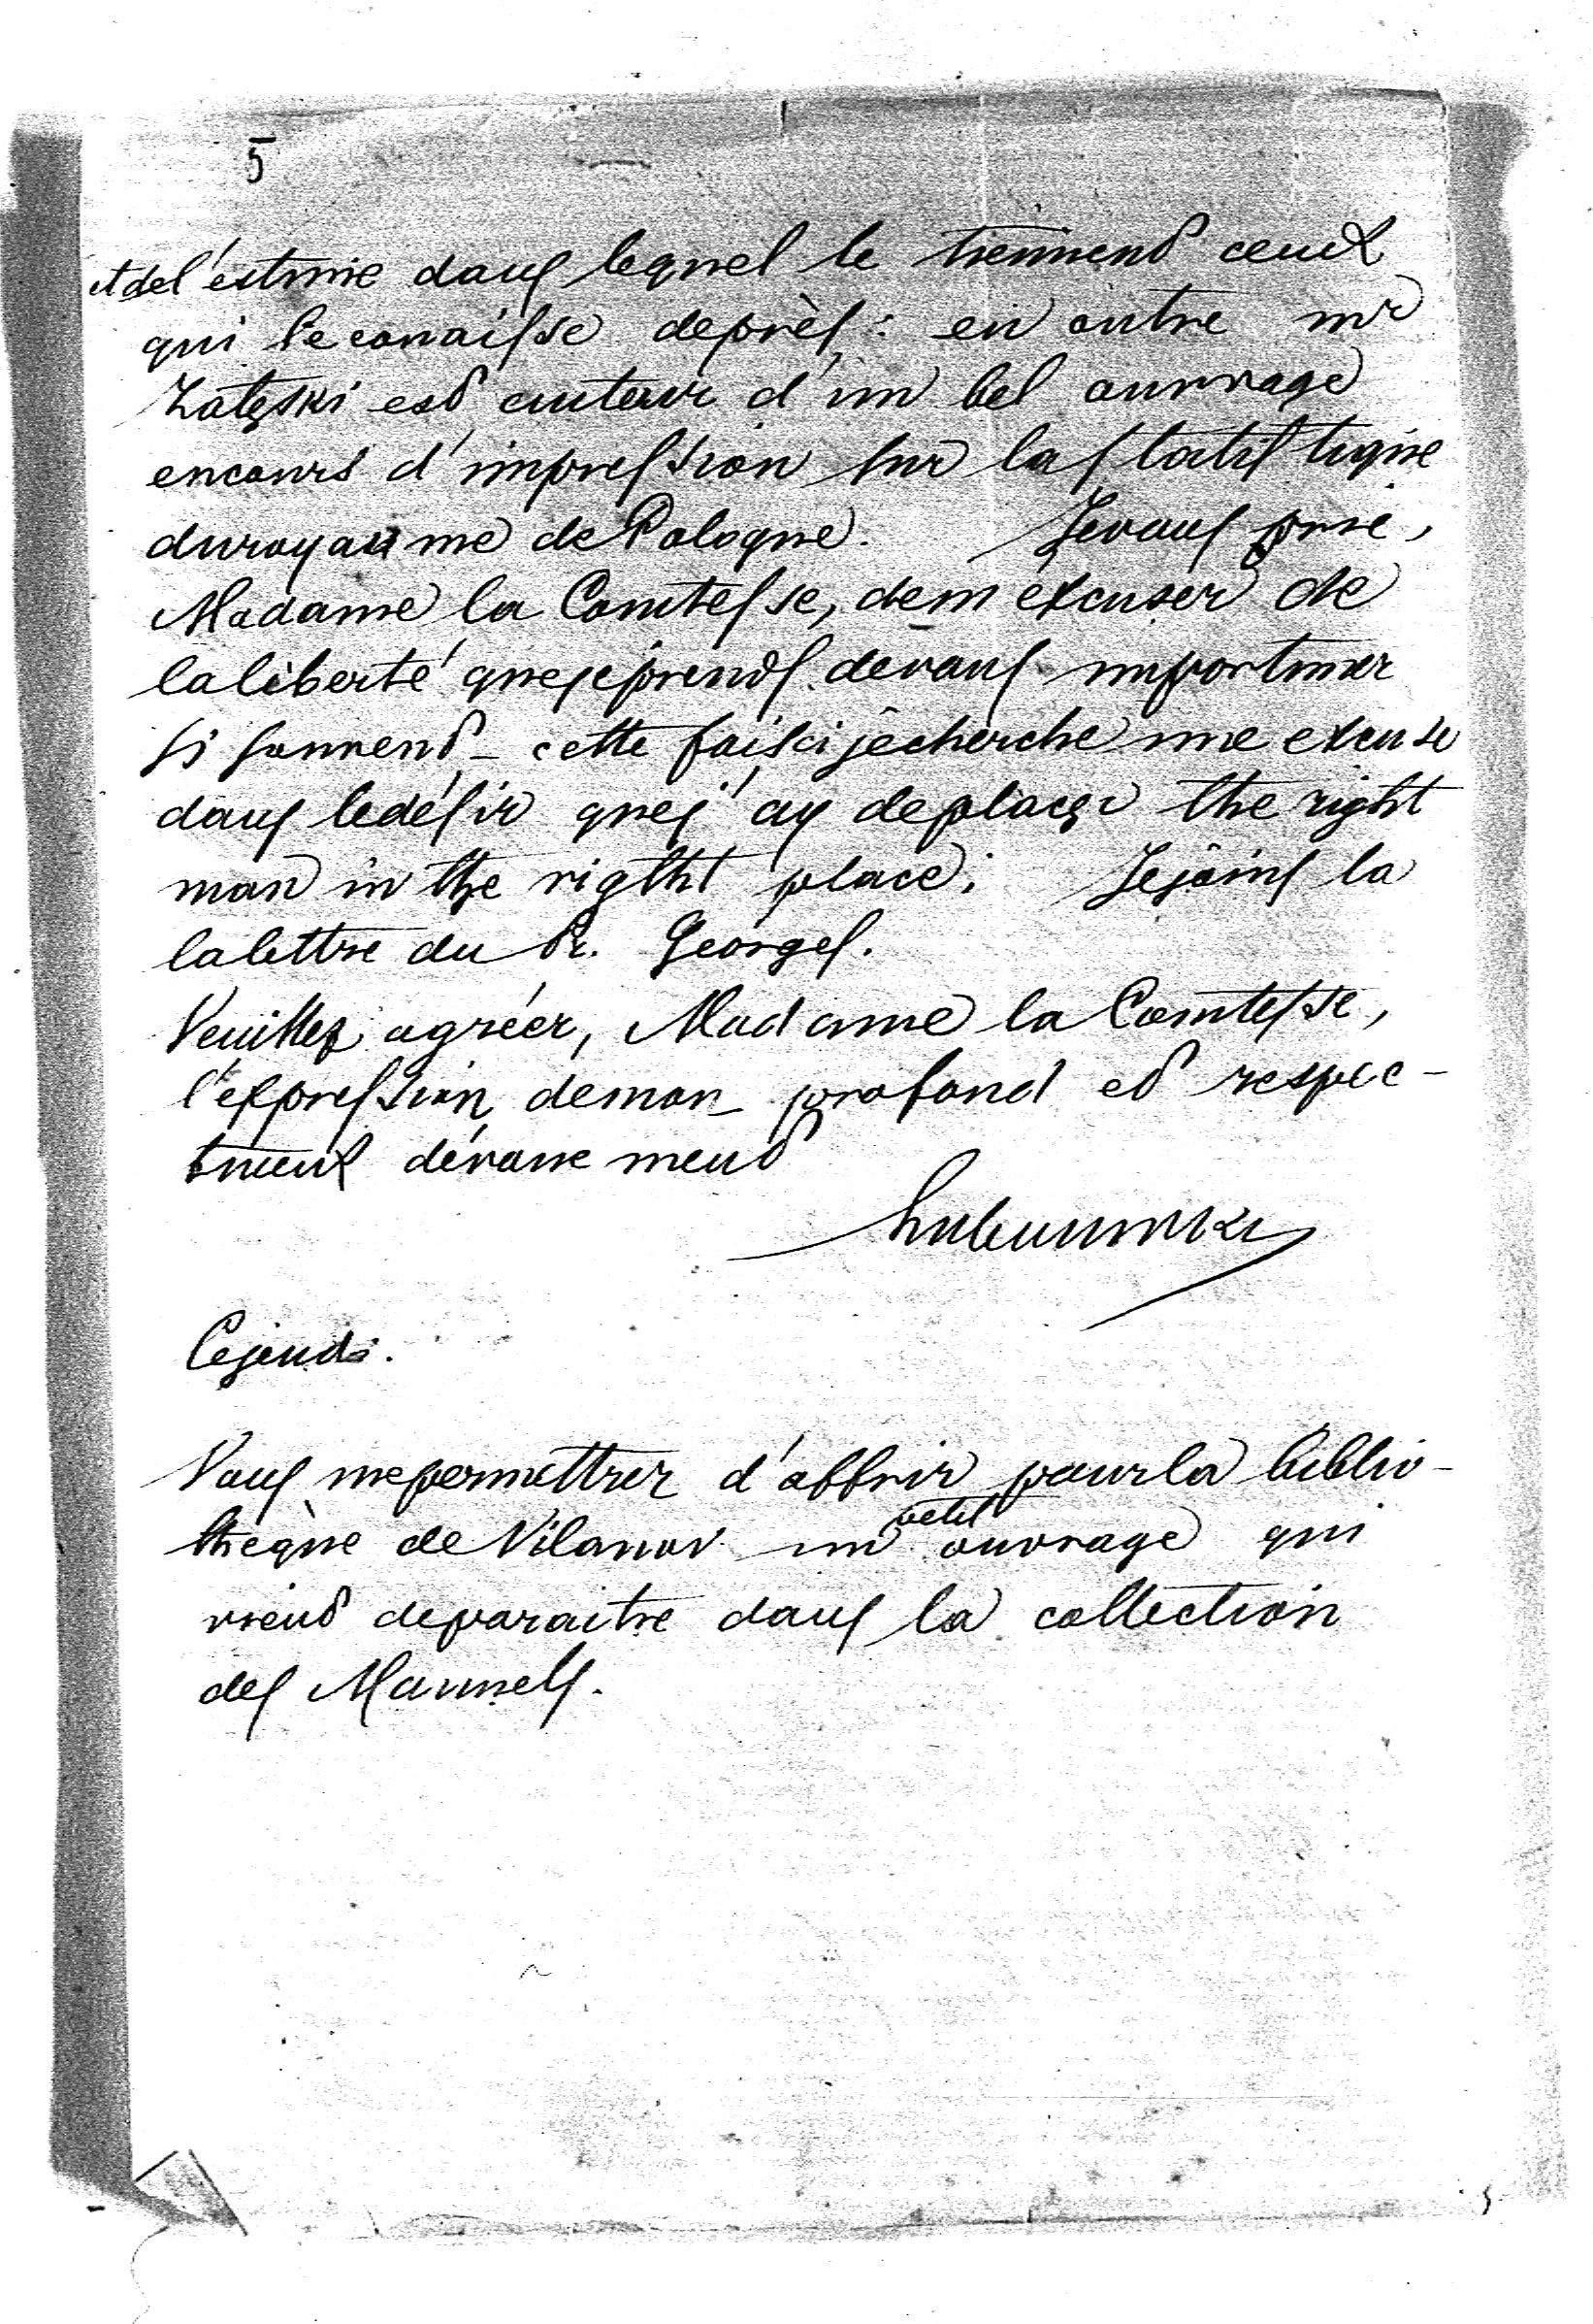 5
et de l'estime dans lequel le tiennent ceux
qui le conaisse de près : en outre mr
Załęski est auteur d'un bel ouvrage
en cours d'impression sur la statistique
du royaume de Pologne. Je vous prie,
Madame la Comtesse, de m'éxcuser de
la liberté que je prends de vous importuner
si souvent - cette fois ci je cherche une excuse
dans le désir que j'ay de placer the right
man in the rigtht place. Je joins la
la lettre du Dr. Georges.
Veuillez agréer, Madame la Comtesse,
l'expression de mon profond et respec-
tueux dévouement
Ce jeudi.
Vous me permettrer d'offrir pour la biblio-
thèque de Vilanov un petit ouvrage qui
vient de paraitre dans la collection
des Manuels.